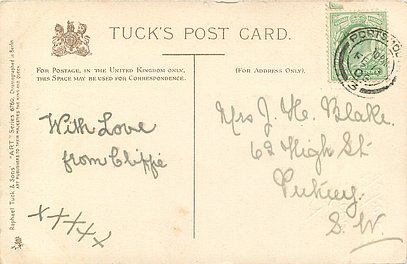 TUCK'S POST CARD.
FOR POSTAGE, IN THE UNITED KINGDOM ONLY,
THIS SPACE MAY BE USED FOR CORRESPONDENCE.
(FOR ADDRESS ONLY.)
With Love
from Cliffie
x x x x x
Mrs J. H. Blake.
62 High St
Putney.
S. W.
Raphael Tuck & Sons' "ART" Series 6780.
ART PUBLISHERS TO THEIR MAJESTIES THE KING AND QUEEN.